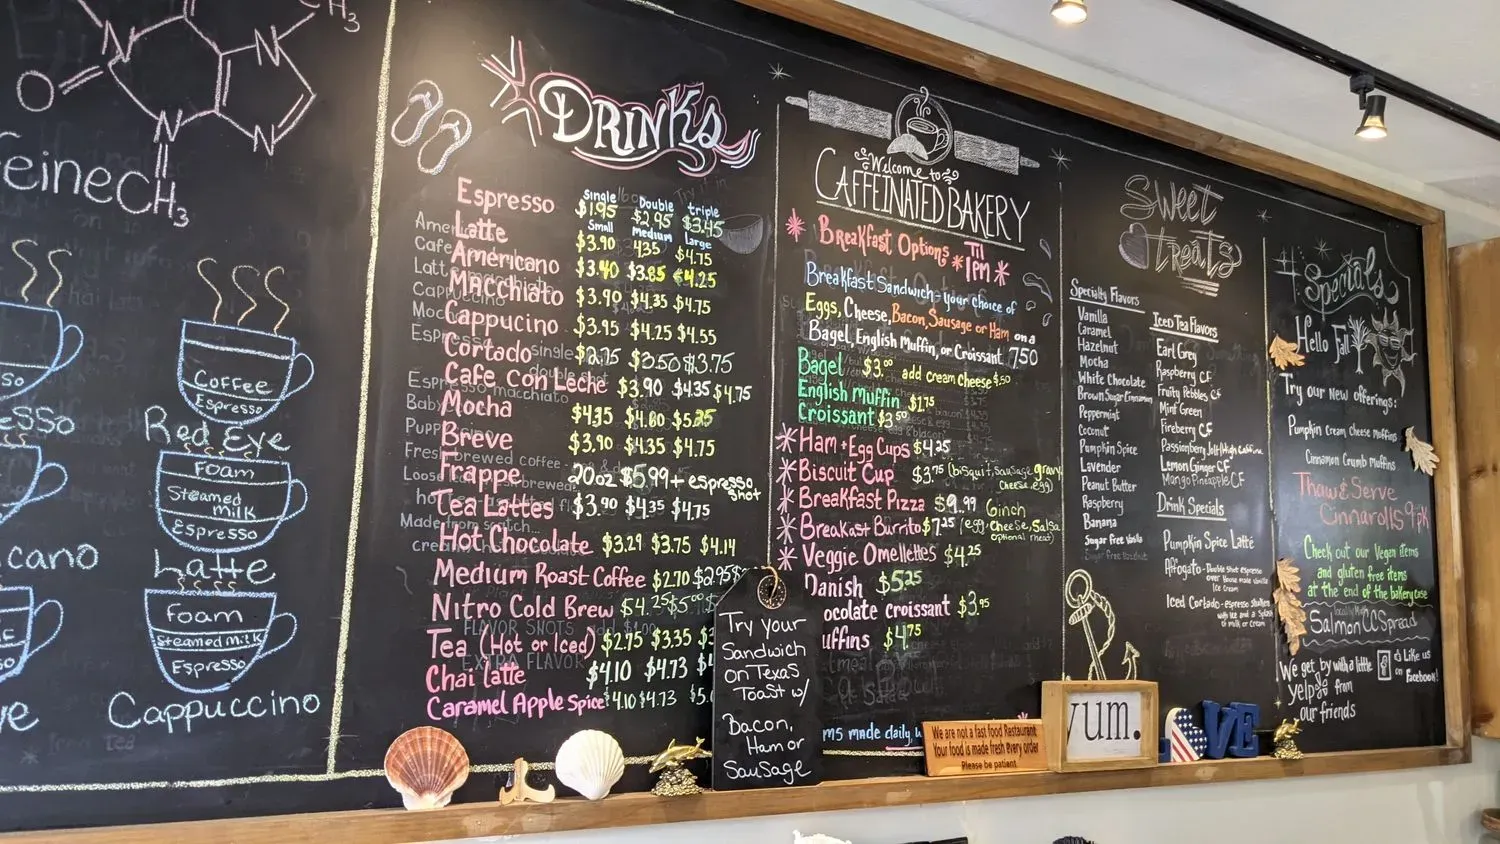 CH3
N
N
O
N
N
CH3
eineCH3
Coffee
Espresso
Red Eye
Foam
Steamed milk
Espresso
Latte
Foam
Steamed milk
Espresso
Cappuccino
so
esso
cano
DRINKS
Single Double triple
Espresso $1.95 $2.95 $3.45
Small Medium Large
Latte $3.90 4.35 $4.75
Americano $3.40 $3.85 $4.25
MACChiato $3.90 $4.35 $4.75
Cappucino $3.95 $4.25 $4.55
Cortado $2.75 $3.50 $3.75
Cafe Con Leche $3.90 $4.35 $4.75
Mocha $4.35 $4.80
Breve $3.90 $4.35 $4.75
Frappe 20oz $5.99 + espresso shot
Tea Lattes $3.90 $4.35 $4.75
Hot Chocolate $3.29 $3.75 $4.14
Medium Roast Coffee $2.70 $2.95
Nitro Cold Brew $4.25 $5.00
FLAVOR SHOTS
Tea (Hot or Iced) $2.75 $3.35
EXTRA FLAVOR
Chai latte $4.10 $4.73
Caramel Apple Spice $4.10 $4.73
Try your
Sandwich
on Texas
Toast w/
Bacon,
Ham or
Sausage
Welcome to
CAFFEINATED BAKERY
Breakfast Options Til 1PM
Breakfast Sandwich - your choice of
Eggs, Cheese, Bacon, Sausage or Ham on a
Bagel, English Muffin, or Croissant 7.50
Bagel $3.00 add cream cheese $.50
English Muffin $1.75
Croissant $3.50
Ham + Egg Cups $4.25
Biscuit Cup $3.75 (bisquit, sausage gravy
cheese, egg)
Breakfast Pizza $9.99 6inch
Breakast Burrito $7.25 (egg, cheese, Salsa
optional meat)
Veggie Omellettes $4.25
Danish $5.25
ocolate croissant $3.95
uffins $4.75
ms made daily,
We are not a fast food Restaurant
Your food is made fresh every order
Please be patient
yum.
LOVE
Sweet
treats
Specialty Flavors
Vanilla
Caramel
Hazelnut
Mocha
White Chocolate
Brown Sugar Cinnamon
Peppermint
Coconut
Pumpkin Spice
Lavender
Peanut Butter
Raspberry
Banana
Sugar free Vanilla
Sugar free Hazelnut
Iced Tea Flavors
Earl Grey
Raspberry CF
Fruity Pebbles CF
Mint Green
Fireberry CF
Lemon Ginger CF
Mango Pineapple CF
Drink Specials
Pumpkin Spice Latte
Affogato - Double shot espresso
over House made Vanilla
Ice Cream
Iced Cortado - espresso shaken
with ice and a Splash
of milk or Cream
#Specials
Hello Fall
Try our new offerings:
Pumpkin Cream Cheese Muffins
Cinnamon Crumb Muffins
Thaw & Serve
Cinnarolls 9pk
Check out our Vegan items
and gluten free items
at the end of the bakery case
Locally Made
Salmon CC Spread
We get by with a little
yelp from
our friends
Like us
on
Facebook!